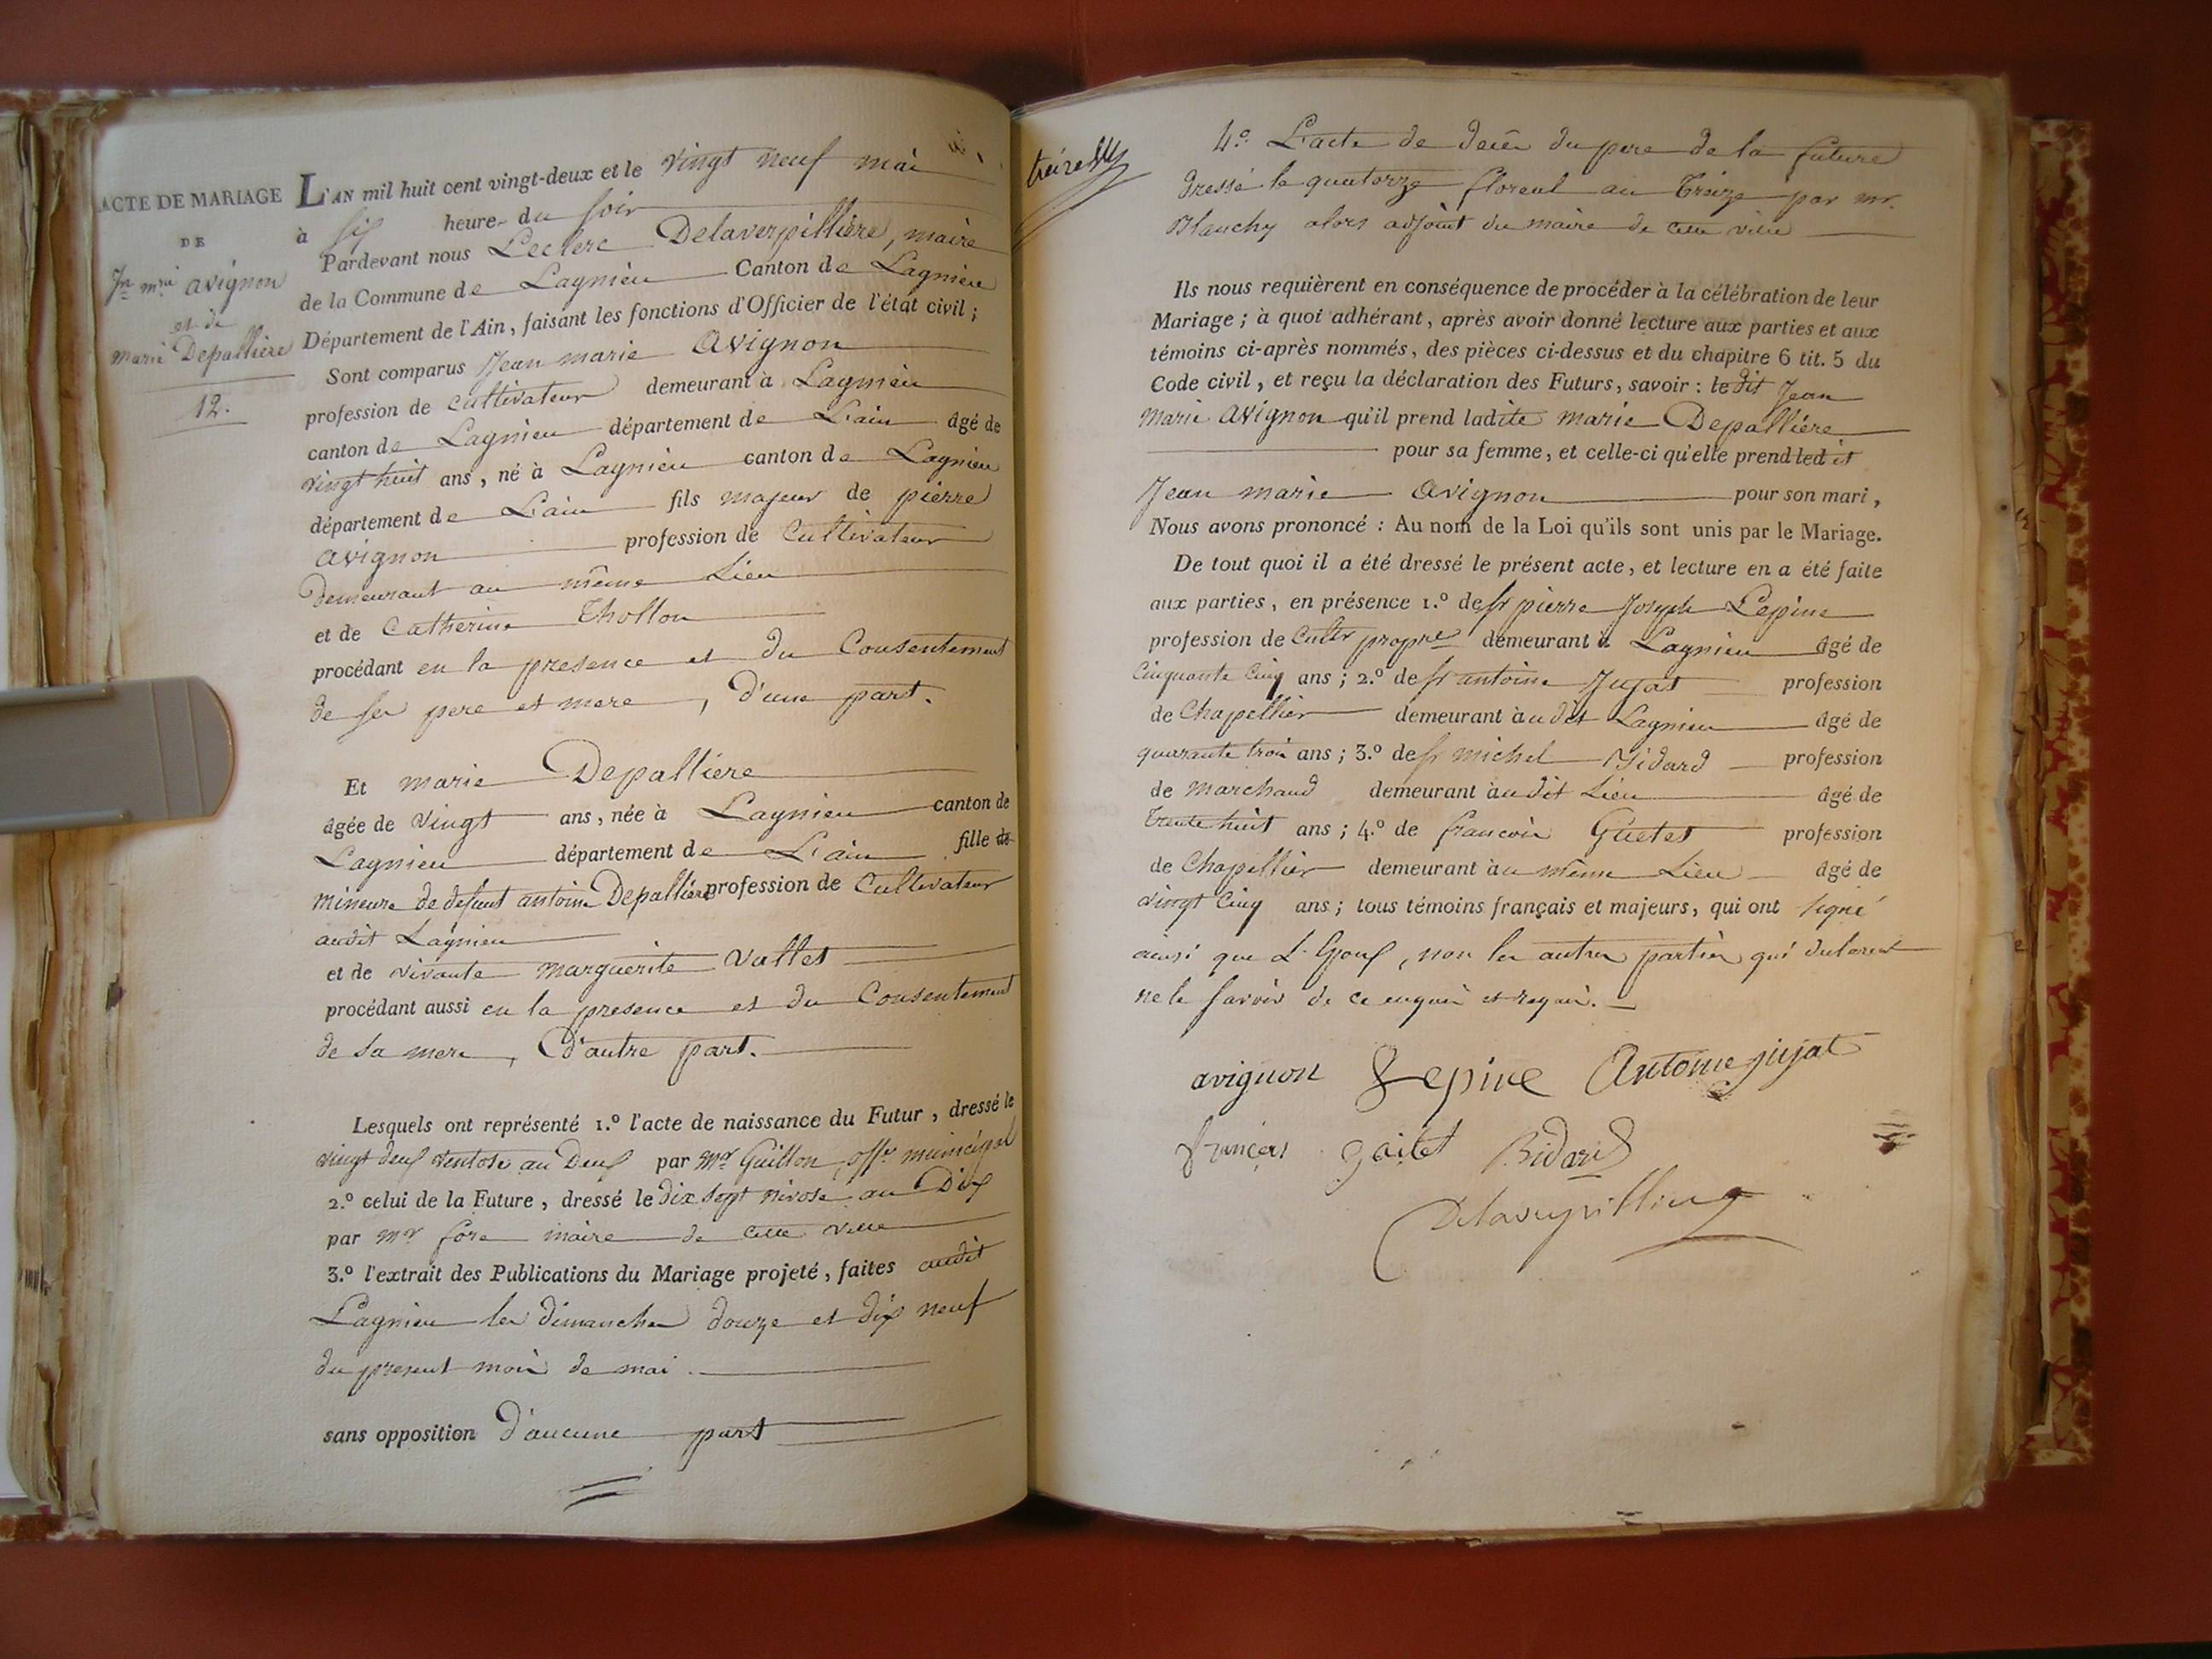 ACTE DE MARIAGE
DE
Jn mie avignon
et de
marie Depallière
12.
L'AN mil huit cent vingt-deux et le vingt neuf mai
à six heure du soir
Pardevant nous Leclerc Delaverpillière, maire
de la Commune de Lagnieu Canton de Lagnieu
Département de l'Ain, faisant les fonctions d'Officier de l'état civil;
Sont comparus Jean marie avignon
profession de cultivateur demeurant à Lagnieu
canton de Lagnieu département de L'ain âgé de
vingt huit ans, né à Lagnieu canton de Lagnieu
département de L'ain fils majeur de pierre
avignon profession de Cultivateur
demeurant au même Lieu
et de Catherine Thollon
procédant en la presence et du Consentement
de ses pere et mere, d'une part.
Et marie Depallière
âgée de vingt ans, née à Lagnieu canton de
Lagnieu département de L'ain fille de
mineure de defunt antoine Depallière profession de Cultivateur
audit Lagnieu
et de vivante marguerite Vallet
procédant aussi en la presence et du Consentement
de sa mere, d'autre part.
Lesquels ont représenté 1.º l'acte de naissance du Futur, dressé le
vingt deux ventose an Deux par Mr Guillon, offr municipal
2.º celui de la Future, dressé le dix sept nivose an Dix
par Mr fore maire de cette ville
3.º l'extrait des Publications du Mariage projeté, faites audit
Lagnieu les dimanches douze et dix neuf
du present mois de mai.
sans opposition d'aucune part
4.º L'acte de deces du pere de la future
dressé le quatorze floreal an treize par mr.
Blanchy alors adjoint du maire de cette ville
Ils nous requièrent en conséquence de procéder à la célébration de leur
Mariage; à quoi adhérant, après avoir donné lecture aux parties et aux
témoins ci-après nommés, des pièces ci-dessus et du chapitre 6 tit. 5 du
Code civil, et reçu la déclaration des Futurs, savoir: ledit Jean
Marie avignon qu'il prend ladite marie Depallière
pour sa femme, et celle-ci qu'elle prend ledit
Jean marie avignon pour son mari,
Nous avons prononcé: Au nom de la Loi qu'ils sont unis par le Mariage.
De tout quoi il a été dressé le présent acte, et lecture en a été faite
aux parties, en présence 1.º de sr pierre Joseph Lepine
profession de Cultr propre demeurant à Lagnieu âgé de
Cinquante Cinq ans; 2.º de sr antoine Jujat profession
de Chapellier demeurant audit Lagnieu âgé de
quarante trois ans; 3.º de sr michel Bidard profession
de marchand demeurant audit Lieu âgé de
Trente huit ans; 4.º de francois Guetet profession
de Chapellier demeurant au même Lieu âgé de
vingt Cinq ans; tous témoins français et majeurs, qui ont signé
ainsi que L'Epoux, non les autres parties qui
ne le savoir de ce enquis et requis.
avignon Lepine Antoine jujat
françois gaitet Bidard
Delaverpilliere